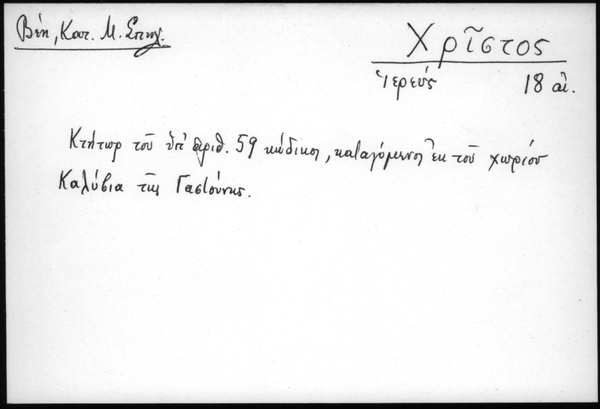 Βέη, Κατ. Μ. Σπηλ.
Χρῖστος
Ἱερεύς 18 αἰ.
Κτήτωρ τοῦ ὑπ' ἀριθ. 59 κώδικος, καταγόμενος ἐκ τοῦ χωρίου
Καλύβια τῆς Γαστούνης.